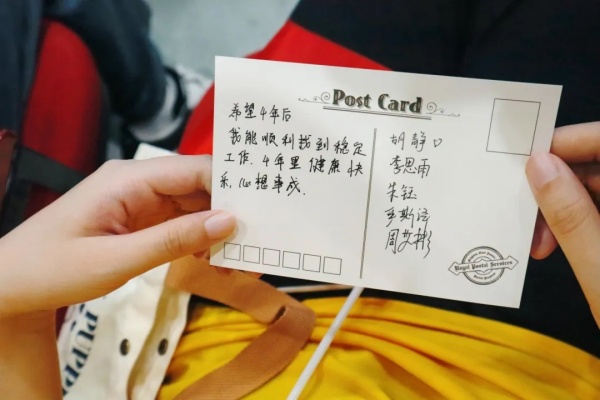 Post Card
希望4年后
我能顺利找到稳定
工作. 4年里 健康 快
乐, 心想事成.
胡静
李思雨
朱钰
周艾彬
Royal Postal Services
PUPP